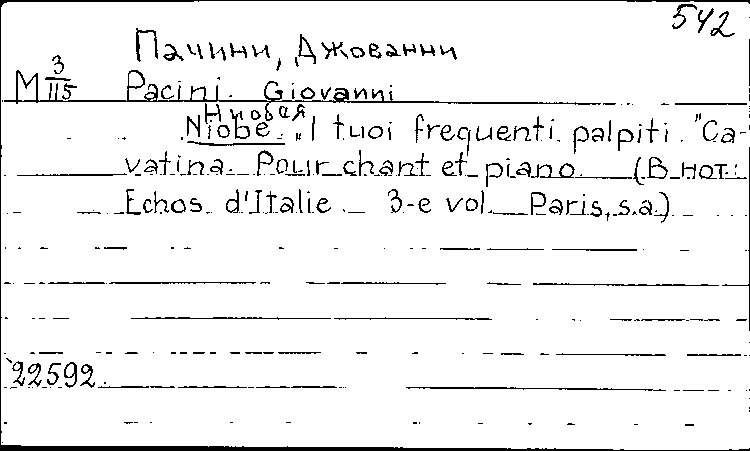 542
Пачини, Джованни
М 3/115 Pacini. Giovanni
Ниобея
Niobe. „I tuoi frequenti palpiti." Ca-
vatina. Pour chant et piano. (В нот.:
Echos d'Italie. 3-e vol. Paris, s.a.)
22592